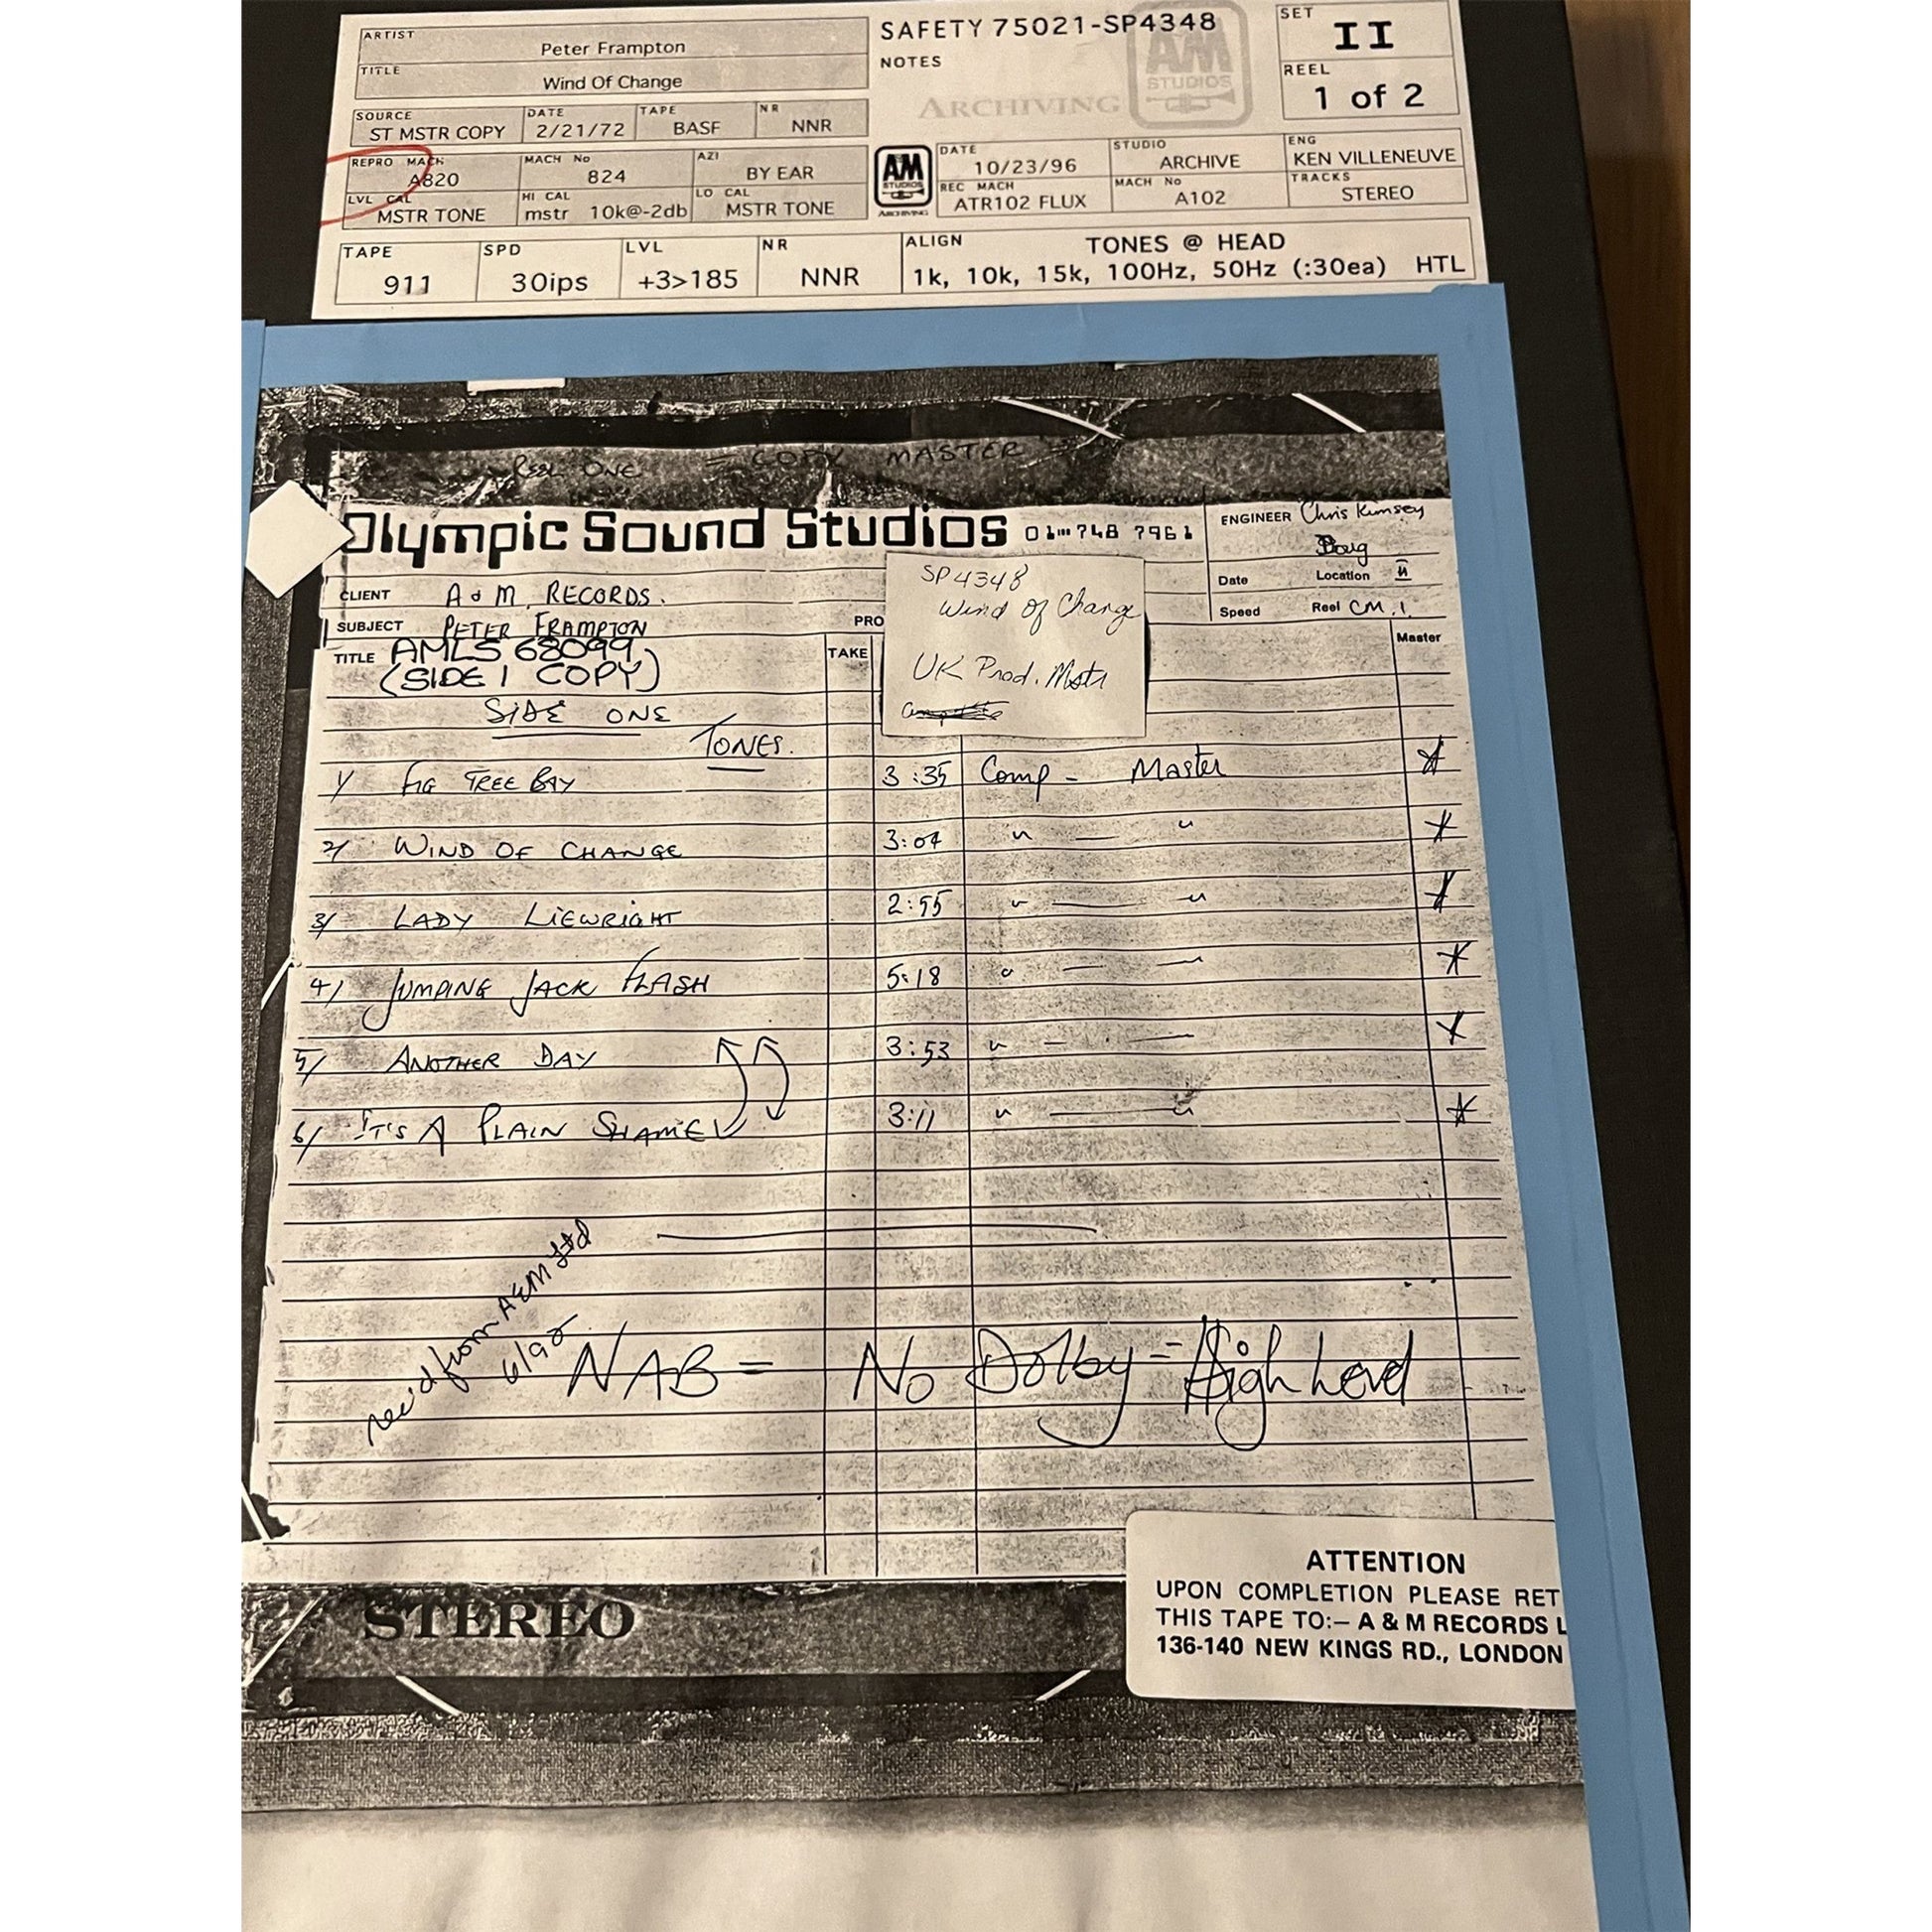 ARTIST
Peter Frampton
TITLE
Wind Of Change
SOURCE
ST MSTR COPY
DATE
2/21/72
TAPE
BASF
NR
NNR
REPRO MACH
A820
MACH No
824
AZI
BY EAR
LVL CAL
MSTR TONE
HI CAL
mstr 10k@-2db
LO CAL
MSTR TONE
SAFETY 75021-SP4348
NOTES
ARCHIVING
AM
STUDIOS
SET
II
REEL
1 of 2
AM
STUDIOS
ARCHIVING
DATE
10/23/96
STUDIO
ARCHIVE
ENG
KEN VILLENEUVE
REC MACH
ATR102 FLUX
MACH No
A102
TRACKS
STEREO
TAPE
911
SPD
30ips
LVL
+3>185
NR
NNR
ALIGN
TONES @ HEAD
1k, 10k, 15k, 100Hz, 50Hz (:30ea) HTL
REEL ONE = COPY MASTER =
Olympic Sound Studios 01 748 7961
ENGINEER Chris Kimsey
Doug
Date Location
Speed Reel CM.1
CLIENT A & M RECORDS.
SUBJECT PETER FRAMPTON
PRO
SP4348
Wind Of Change
UK Prod. Mstr
TITLE AMLS 68099
(SIDE 1 COPY)
TAKE
Master
SIDE ONE
TONES.
1/ FIG TREE BAY 3:35 Comp - Master
2/ WIND OF CHANGE 3:04 " — "
3/ LADY LIEWRIGHT 2:55 " — "
4/ JUMPING JACK FLASH 5:18 " — —
5/ ANOTHER DAY 3:53 " — —
6/ IT'S A PLAIN SHAME 3:11 " — "
rec'd from A&M Ltd
6/92
NAB = No Dolby = High Level
STEREO
ATTENTION
UPON COMPLETION PLEASE RET
THIS TAPE TO:– A & M RECORDS L
136-140 NEW KINGS RD., LONDON